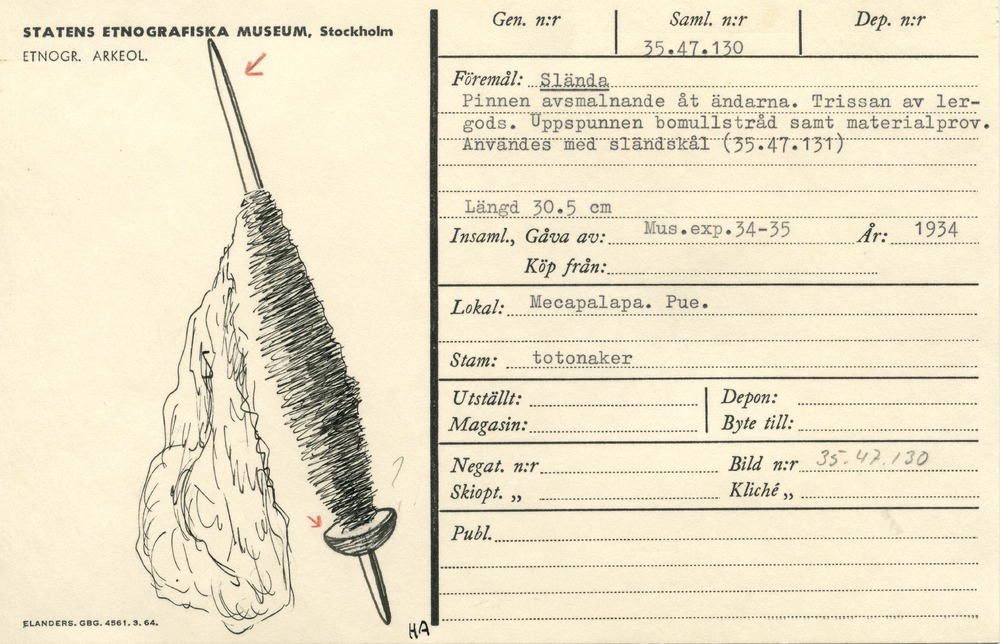 STATENS ETNOGRAFISKA MUSEUM, Stockholm
ETNOGR. ARKEOL.
Gen. n:r Saml. n:r Dep. n:r
35.47.130
Föremål: Slända
Pinnen avsmalnande åt ändarna. Trissan av ler-
gods. Uppspunnen bomullstråd samt materialprov.
Användes med sländskål (35.47.131)
Längd 30.5 cm
Insaml., Gåva av: Mus.exp.34-35 År: 1934
Köp från:
Lokal: Mecapalapa. Pue.
Stam: totonaker
Utställt: Depon:
Magasin: Byte till:
Negat. n:r Bild n:r 35.47.130
Skiopt. „ Kliché „
Publ.
ELANDERS. GBG. 4561. 3. 64.
HA